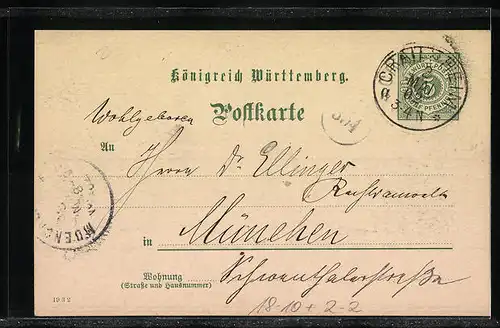 Königreich Württemberg.
Postkarte
Wohlgeboren
An
Herrn Dr Ellinger
Rechtsanwalt
in München
Wohnung
(Straße und Hausnummer)
Schwanthalerstraße
1932
18-10+2-2
CRAILSHEIM
5
MUENCHEN